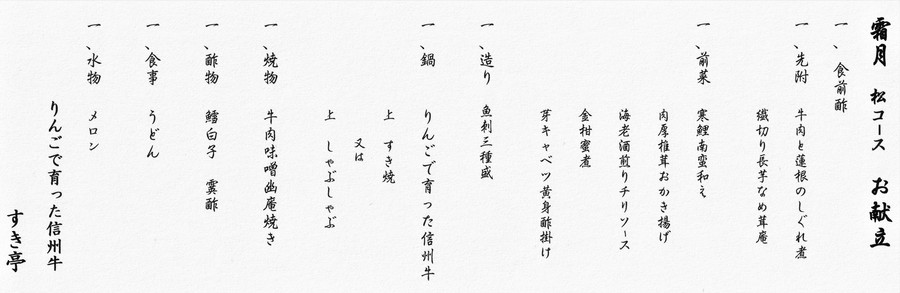 霜月 松コース お献立
一、食前酢
一、先附 牛肉と蓮根のしぐれ煮
繊切り長芋なめ茸庵
一、前菜 寒鯉南蛮和え
肉厚椎茸おかき揚げ
海老酒煎りチリソース
金柑蜜煮
芽キャベツ黄身酢掛け
一、造り 魚刺三種盛
一、鍋 りんごで育った信州牛
上 すき焼
又は
上 しゃぶしゃぶ
一、焼物 牛肉味噌幽庵焼き
一、酢物 鱈白子 霙酢
一、食事 うどん
一、水物 メロン
りんごで育った信州牛
すき亭